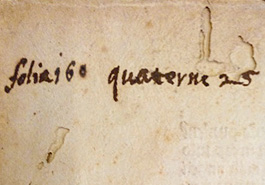 folia 160 quaterne 25